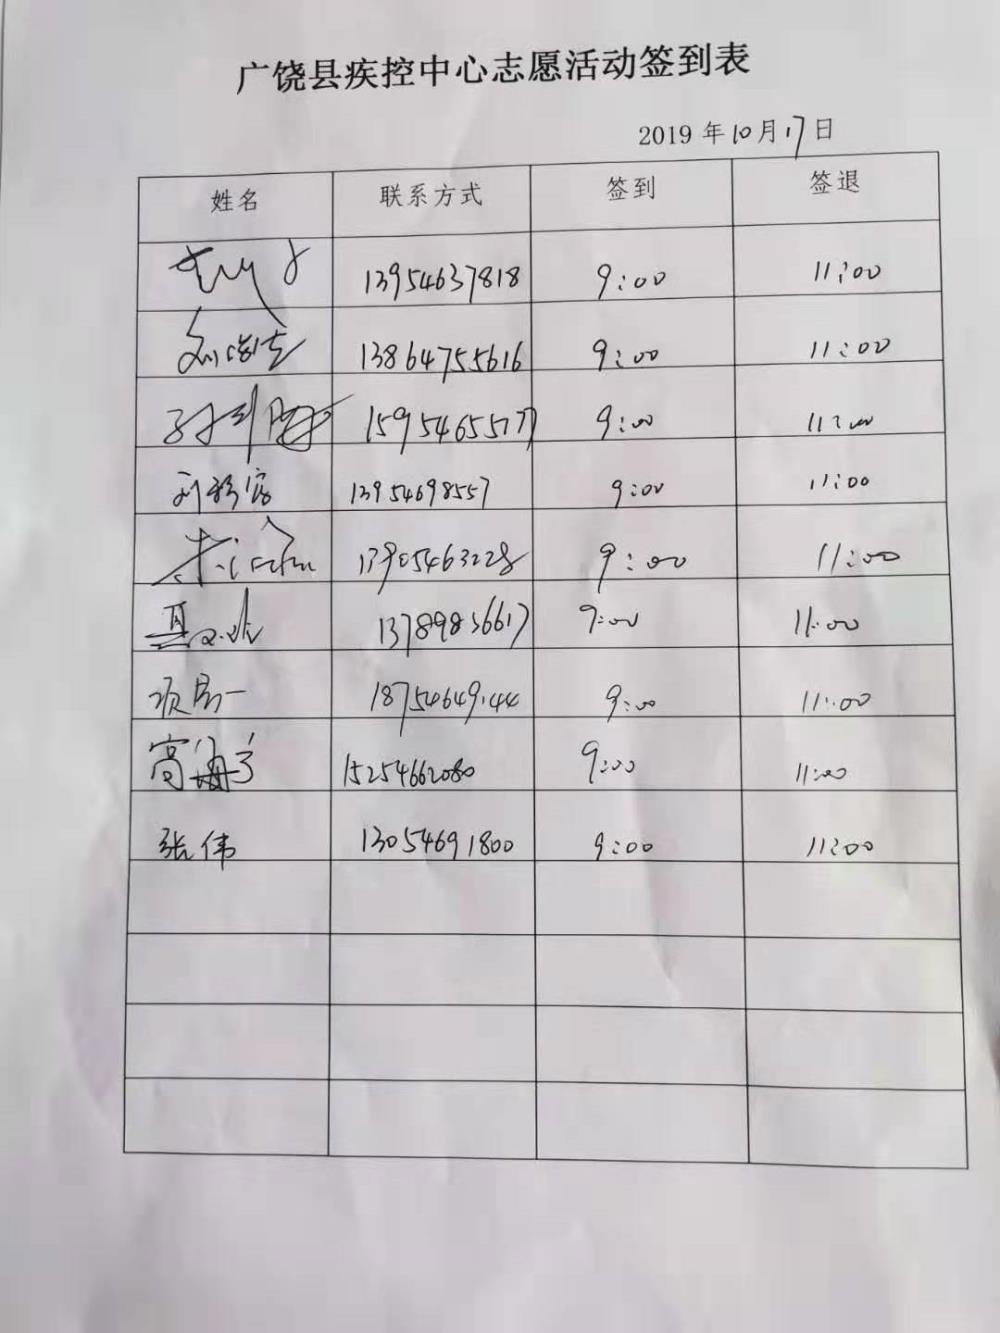 广饶县疾控中心志愿活动签到表
2019 年 10 月 17 日
姓名 联系方式 签到 签退
13954637818 9:00 11:00
13864755616 9:00 11:00
15954655777 9:00 11:00
13954698557 9:00 11:00
13905463228 9:00 11:00
13789836617 9:00 11:00
9:00 11:00
15254662080 9:00 11:00
张伟 13054691800 9:00 11:00